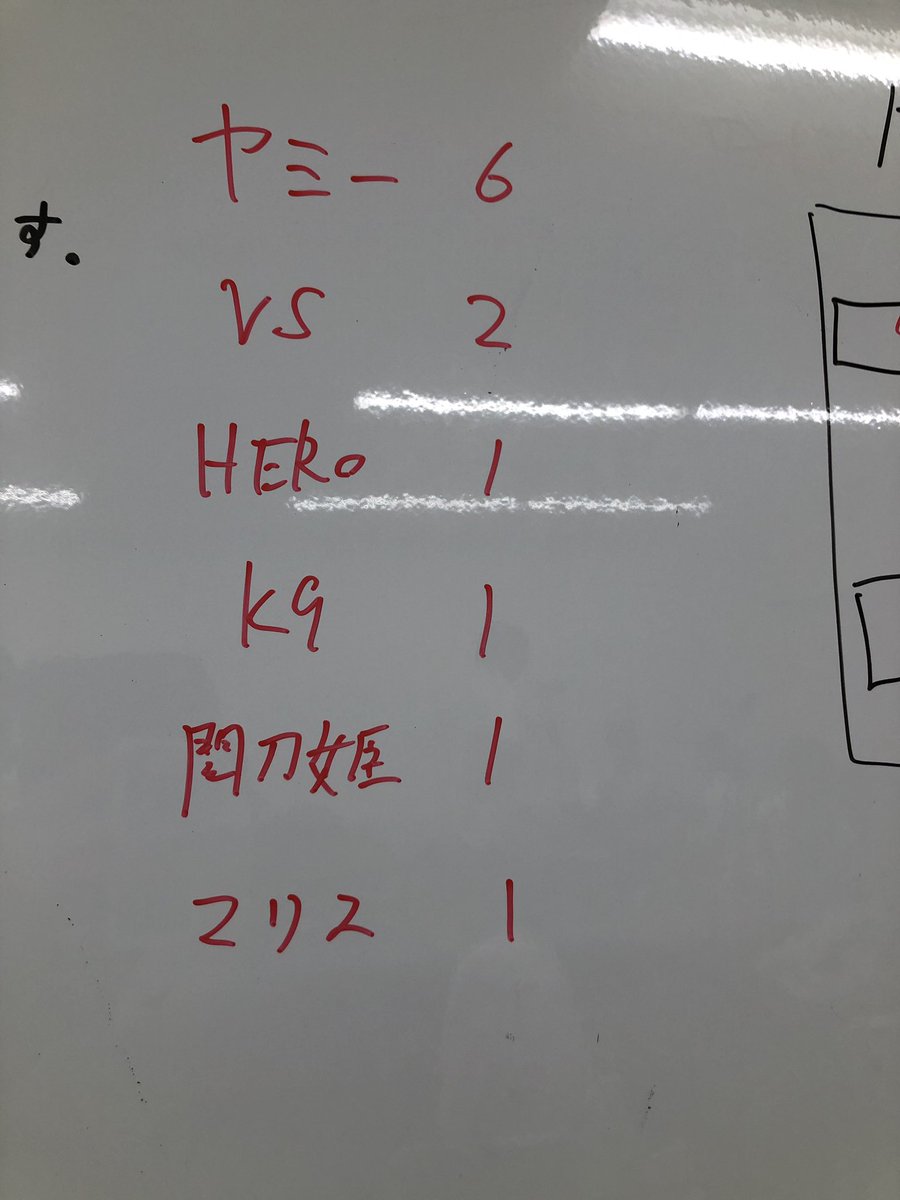 す。
ヤミー 6
VS 2
HERO 1
K9 1
閃刀姫 1
マリス 1